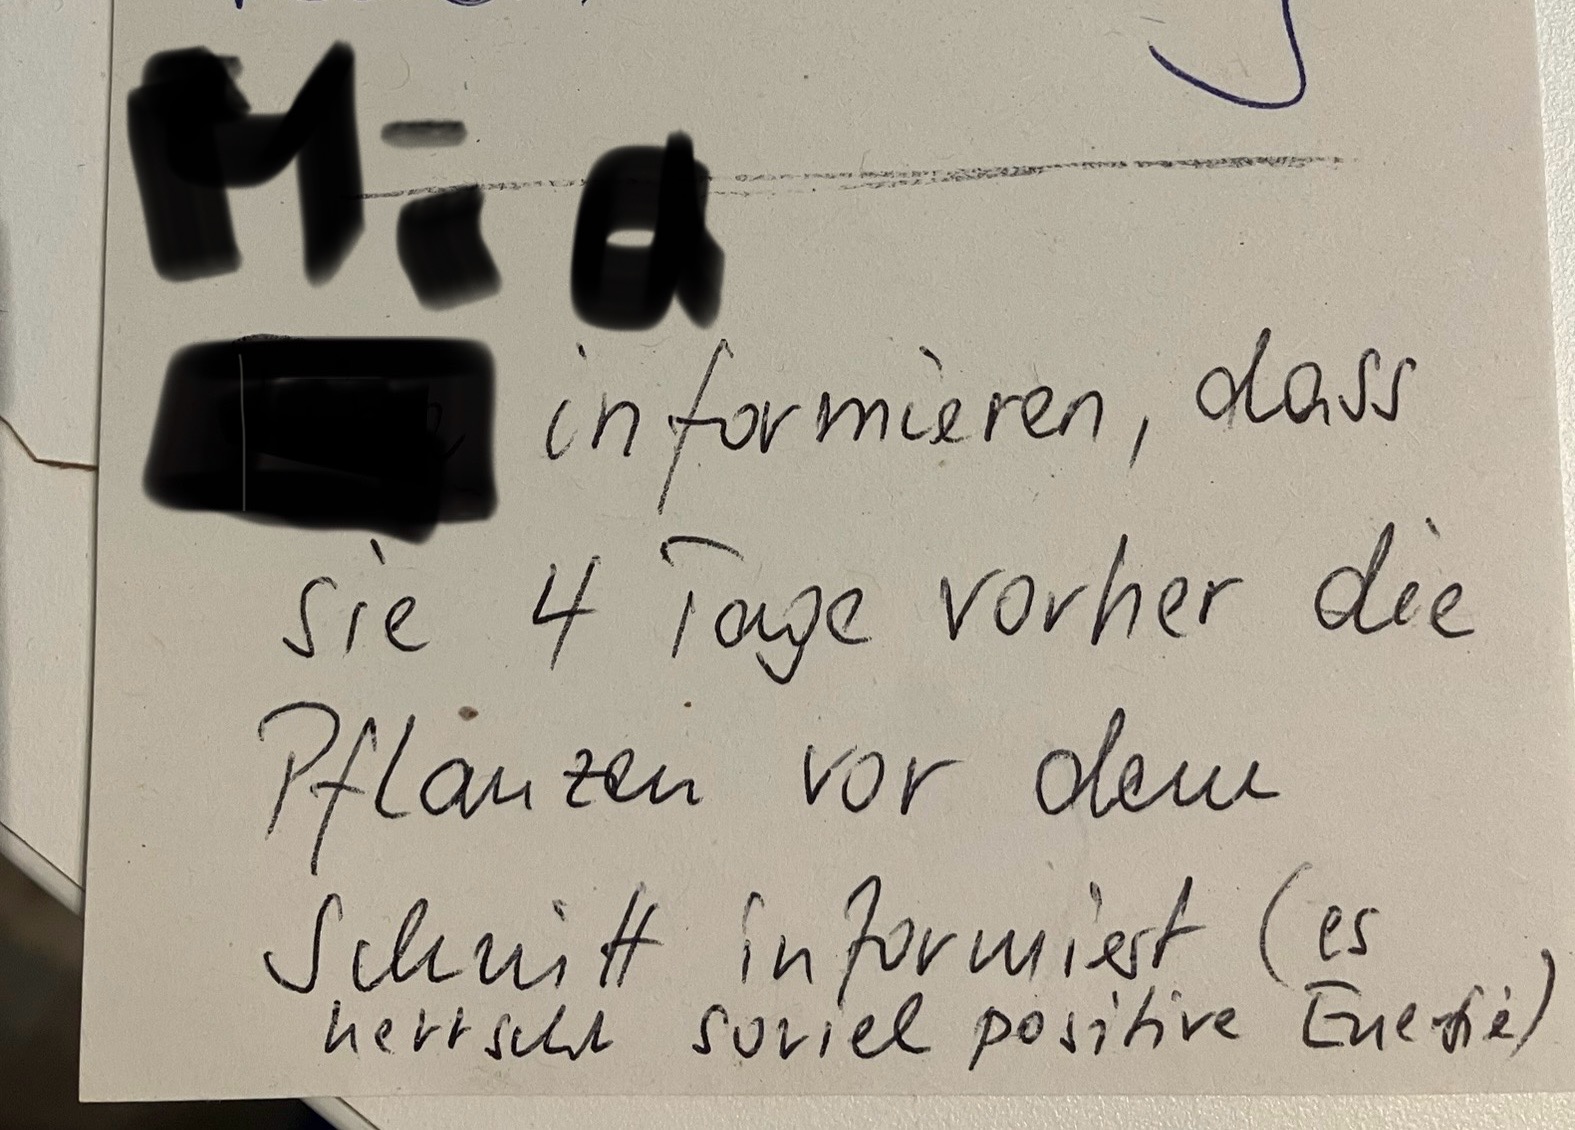 informieren, dass
sie 4 Tage vorher die
Pflanzen vor dem
Schnitt informiert (es
herrscht soviel positive Energie)